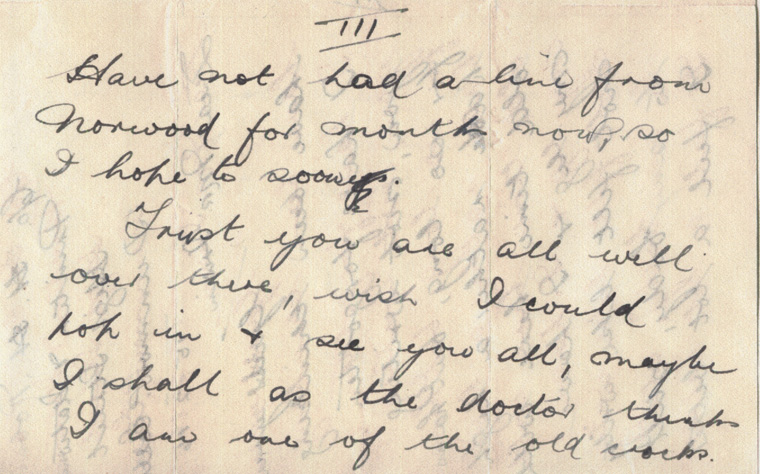 III
Have not had a line from
Norwood for months now, so
I hope to soon.
Trust you are all well
over there, wish I could
hop in & see you all, maybe
I shall as the doctor thinks
I am one of the old crocks.